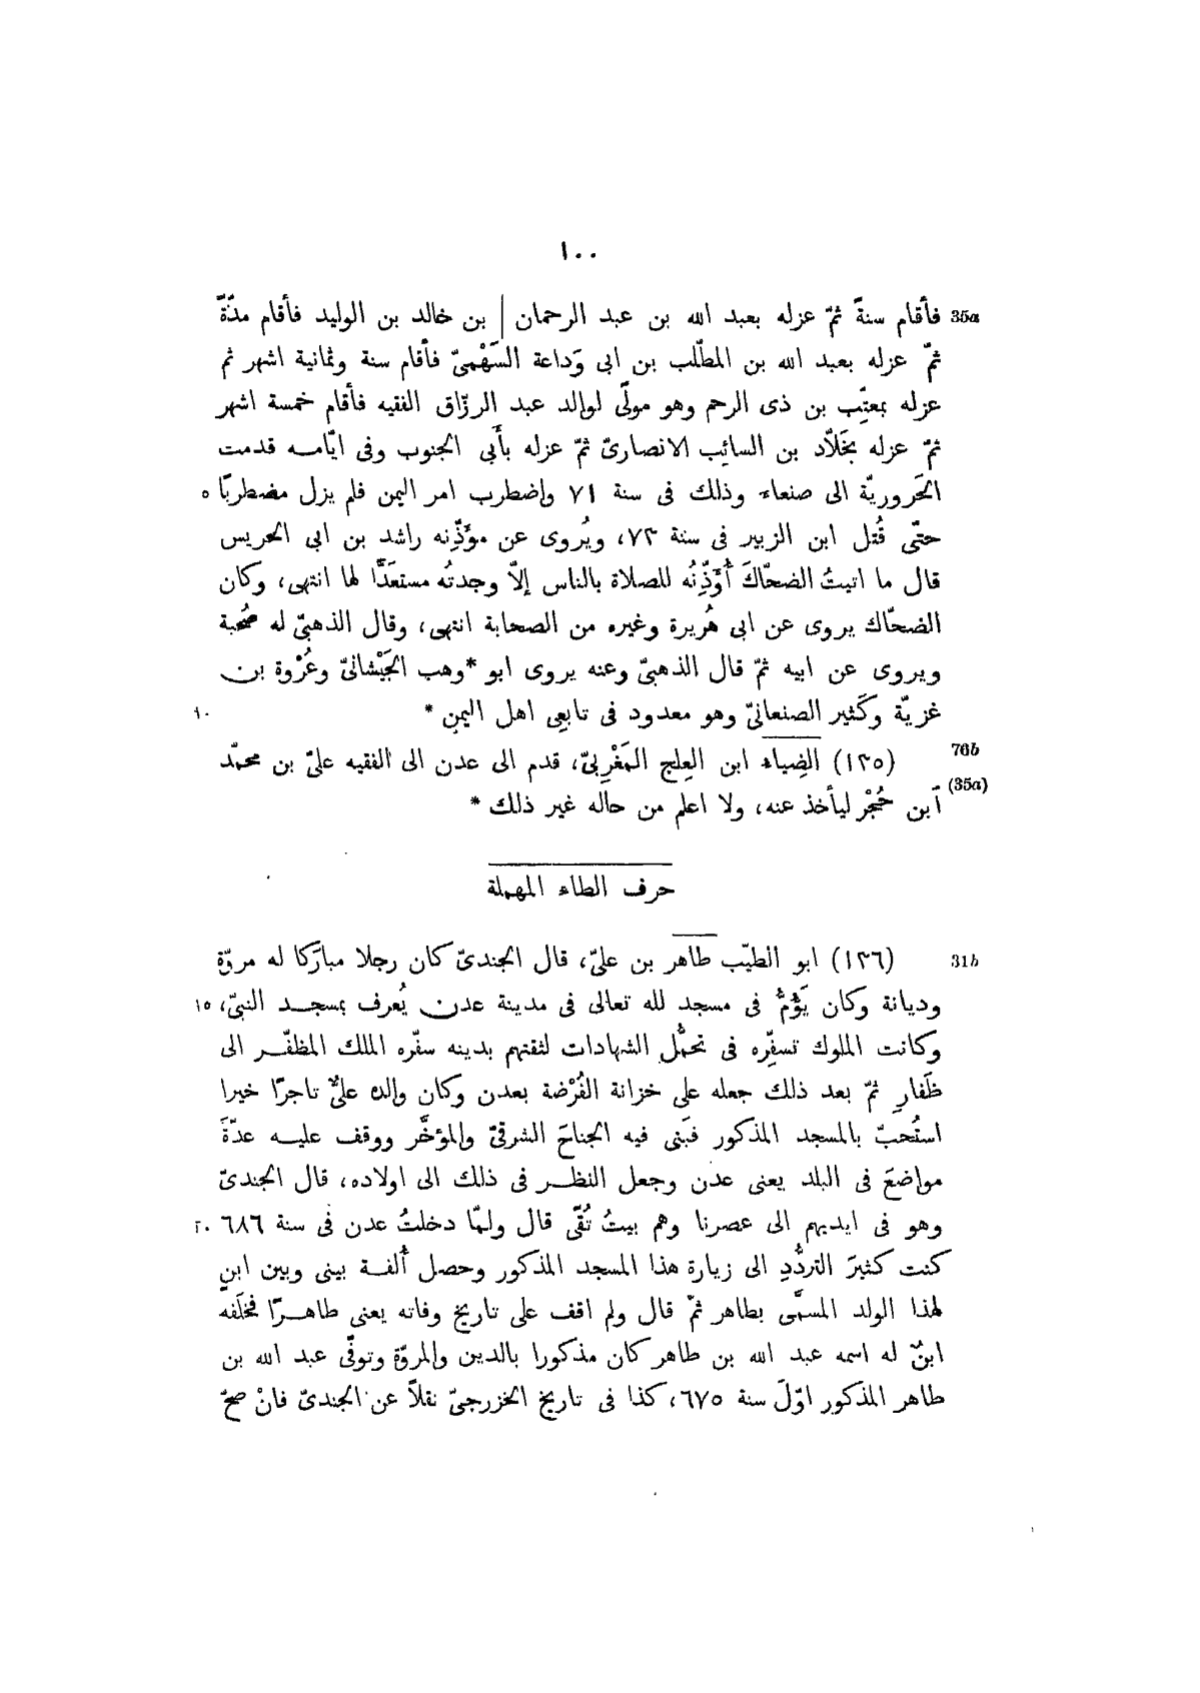 ١٠٠
35a فأقام سنةً ثمّ عزله بعبد الله بن عبد الرحمان | بن خالد بن الوليد فأقام مدّةً
ثمّ عزله بعبد الله بن المطّلب بن ابى وَداعة السَهْمىّ فأقام سنة وثمانية اشهر ثم
عزله بمعتِّب بن ذى الرحم وهو مولًى لوالد عبد الرزّاق الفقيه فأقام خمسة اشهر
ثمّ عزله بخَلاّد بن السائِب الانصارىّ ثمّ عزله بأَبى الجنوب وفى ايّامه قدمت
الحَروريّة الى صنعاء وذلك فى سنة ٧١ واضطرب امر اليمن فلم يزل مضطربًا ٥
حتّى قُتل ابن الزبير فى سنة ٧٣، ويُروى عن مؤَذّنِه راشد بن ابى الحريس
قال ما اتيتُ الضحّاكَ أُوَذّنُه للصلاة بالناس إلاّ وجدتُه مستعَدًّا لها انتهى، وكان
الضحّاك يروى عن ابى هُريرة وغيره من الصحابة انتهى، وقال الذهبىّ له صُحْبة
ويروى عن ابيه ثمّ قال الذهبىّ وعنه يروى ابو *وهب الجَيْشانىّ وعُرْوة بن
غزيّة وكَثير الصنعانىّ وهو معدود فى تابعِى اهل اليمنِ * ١٠
76b (١٣٥) الضِياء ابن العِلج المَغْرِبىّ، قدم الى عدن الى الفقيه علىّ بن محمّد
(35a) آبن حُجْر ليأخذ عنه، ولا اعلم من حاله غير ذلك *
حرف الطاء المهملة
31b (١٣٦) ابو الطيّب طاهر بن علىّ، قال الجندىّ كان رجلا مبارَكا له مروّة
وديانة وكان يَؤُمُّ فى مسجد لله تعالى فى مدينة عدن يُعرف بمسجد النبىّ، ١٥
وكانت الملوك تسفّره فى تحمُّل الشهادات لثقتهم بدينه سفّره الملك المظفّر الى
ظَفارِ ثمّ بعد ذلك جعله على خزانة الفُرْضة بعدن وكان والده علىٌّ تاجرًا خيرا
استُحبّ بالمسجد المذكور فبَنى فيه الجناحَ الشرقىّ والمؤخَّر ووقف عليه عدّةَ
مواضعَ فى البلد يعنى عدن وجعل النظر فى ذلك الى اولاده، قال الجندىّ
وهو فى ايديهم الى عصرنا وهم بيتُ تُقًى قال ولمّا دخلتُ عدن فى سنة ٦٨٦ ٢٠
كنت كثيرَ التردُّدِ الى زيارة هذا المسجد المذكور وحصل أُلفة بينى وبين ابنٍ
لهذا الولد المسمَّى بطاهر ثمّ قال ولم اقف على تاريخ وفاته يعنى طاهرًا فخلَفه
ابنٌ له اسمه عبد الله بن طاهر كان مذكورا بالدين والمروّة وتوفّى عبد الله بن
طاهر المذكور اوّلَ سنة ٦٧٥، كذا فى تاريخ الخزرجىّ نقلاً عن الجندىّ فانْ صحّ